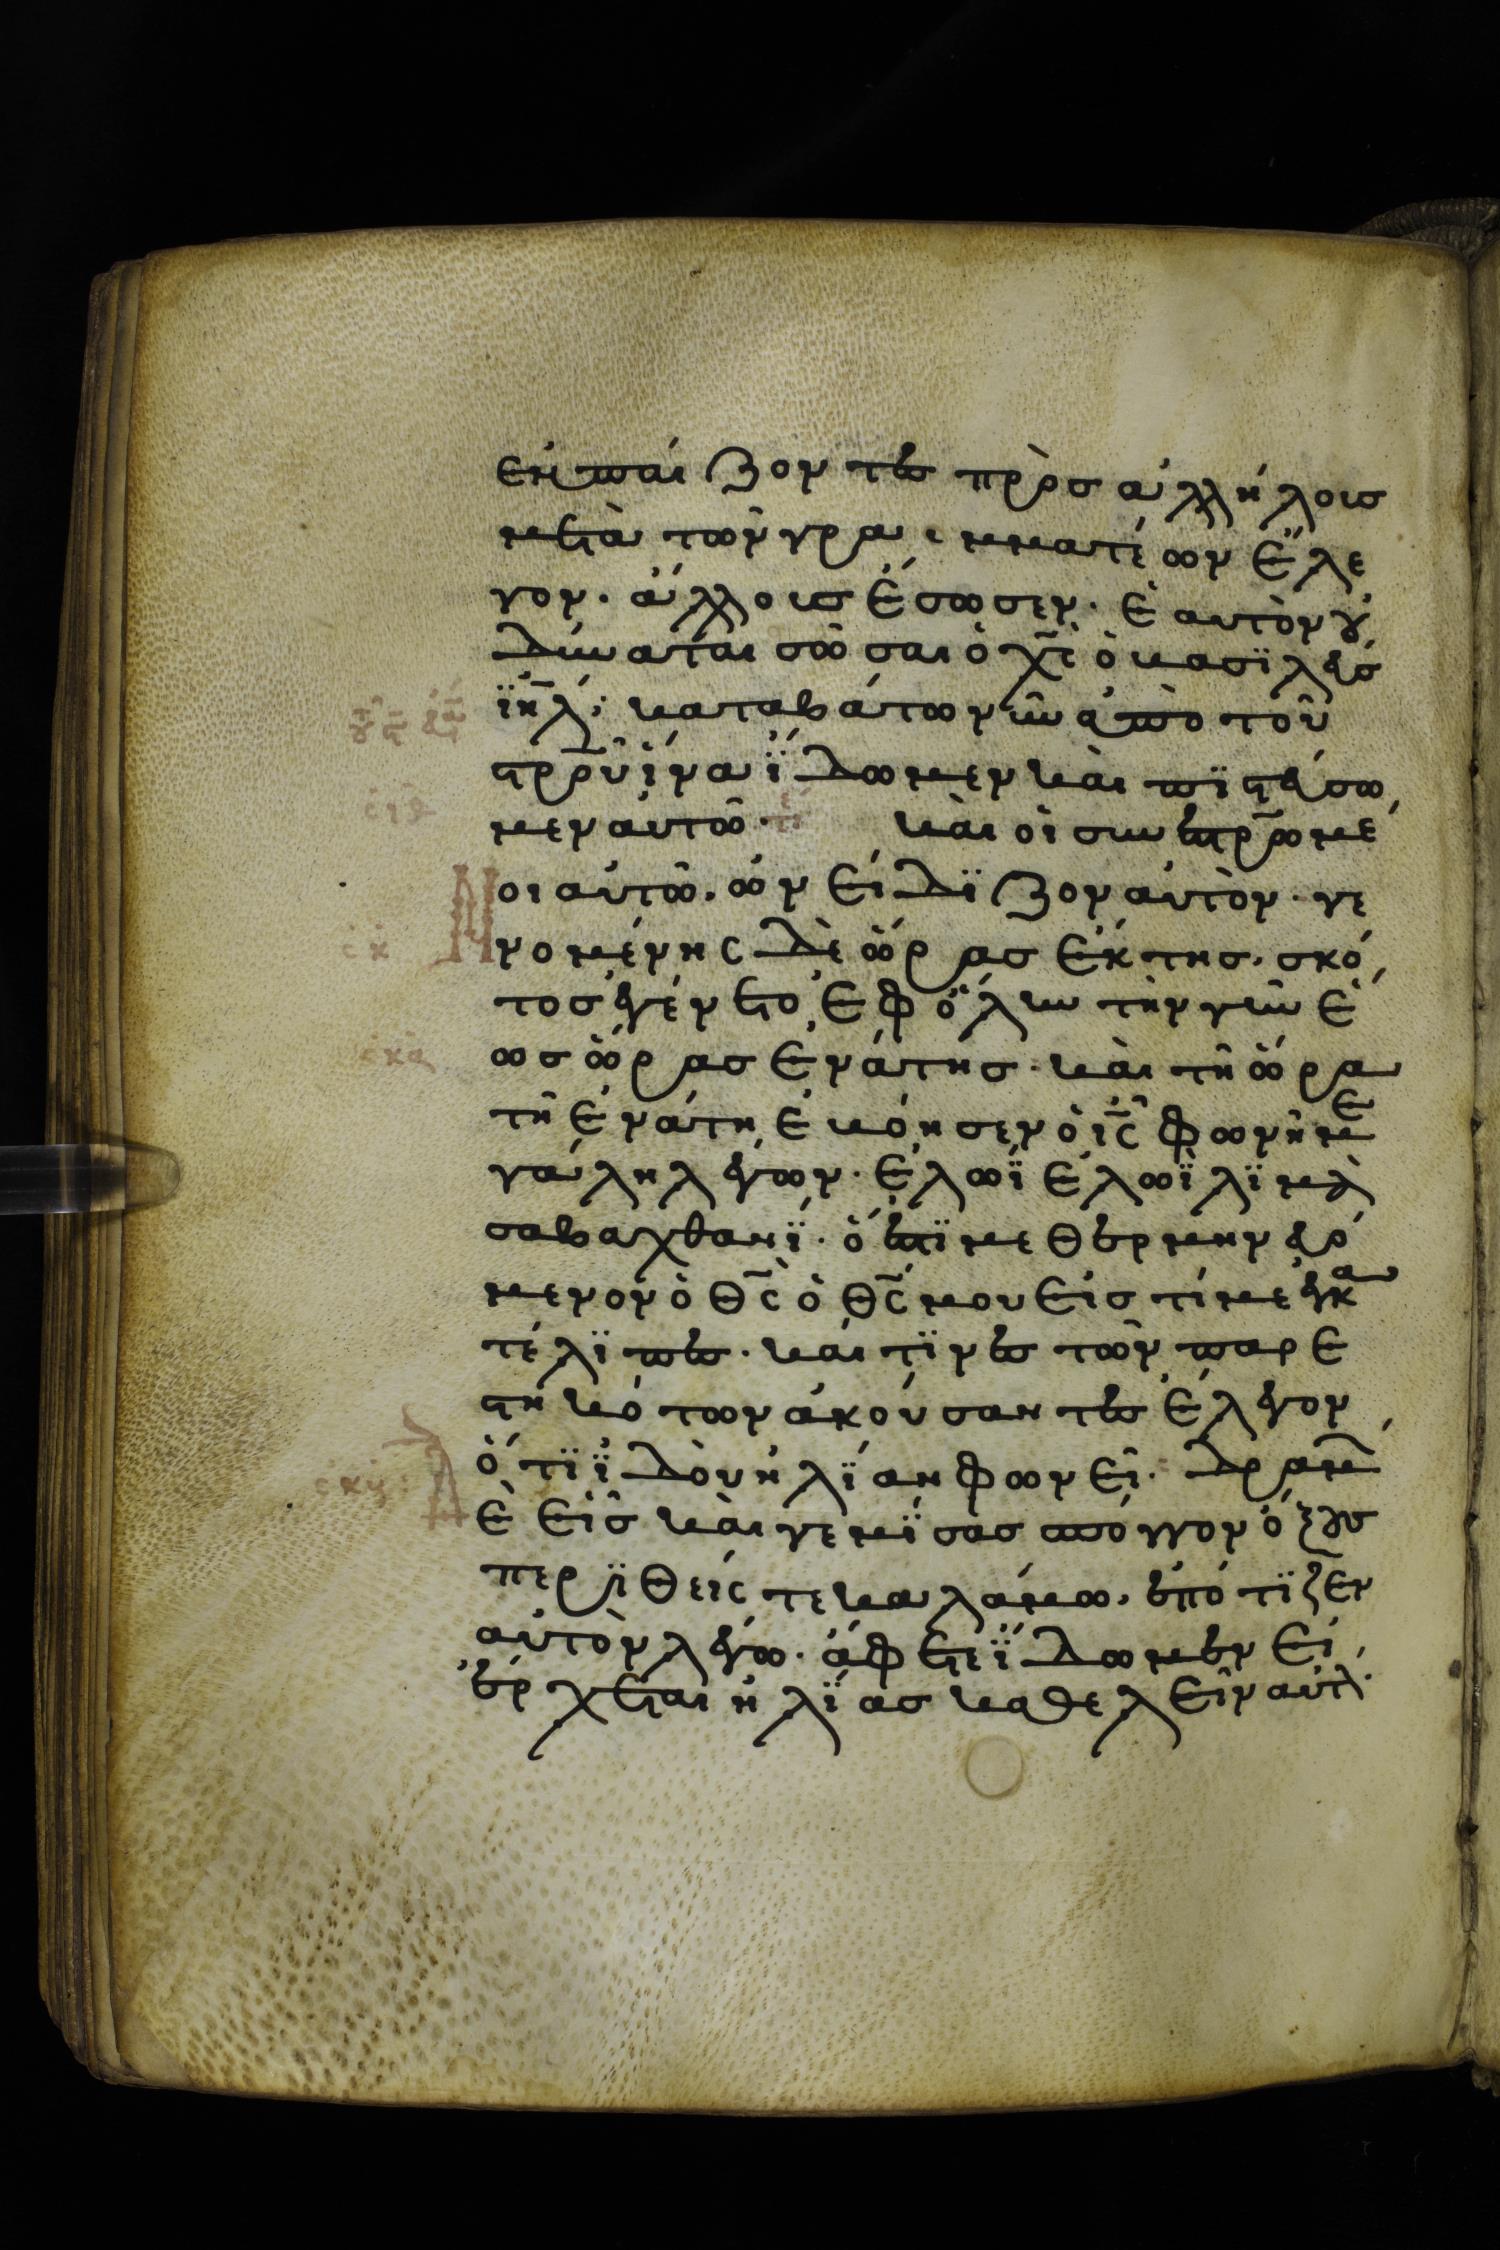 ἐμπαίζοντες πρὸς ἀλλήλοις
μετὰ τῶν γραμματέων ἔλε
γον· ἄλλοις ἔσωσεν· ἑαυτὸν ȣ
δύναται σῶσαι ὁ χ̅ς̅ ὁ βασϊλεύσ
ϊη̅λ̅· καταβάτω νῦν ἀπὸ τοῦ
στρ̅ου ἵνα ἴδωμεν καὶ πϊστεύσω
μεν αὐτῶ· τέ καὶ οἱ συνεστρ̅ωμέ
οι αὐτῶ· ὠνείδϊζον αὐτὸν· γε
νομένης δὲ ὥρας ἕκτης· σκό
τος ἐγένετο ἐφ ὅλην τὴν γῆν ἕ
ως ὥρας ἐνάτης· καὶ τῆ ὥρα
τῆ ἐνάτη ἐβόησεν ὁ ι̅ς̅ φωνῆ με
γάλη λέγων· ἐλωϊ ἐλωϊ λϊμὰ
σαβαχθανϊ· ὅ ἐστϊ μεθερμηνευό
μενον ὁ θ̅ς̅ ὁ θ̅ς̅ μου εἰς τί με ἐγκα
τέλϊπες· καί τϊνες τῶν παρε
στηκότων ἀκούσαντες ἔλεγον
ὅτϊ ϊδοὺ ἠλϊαν φωνεῖ· δραμ
ὲ εἷς καὶ γεμϊσας σπόγγον ὄξους
περϊθείς τε καλάμω· ἐπότϊζεν
αὐτὸν λέγω· ἄφετε ϊδωμεν εἰ
ἔρχεται ἠλϊας καθελεῖν αὐτ